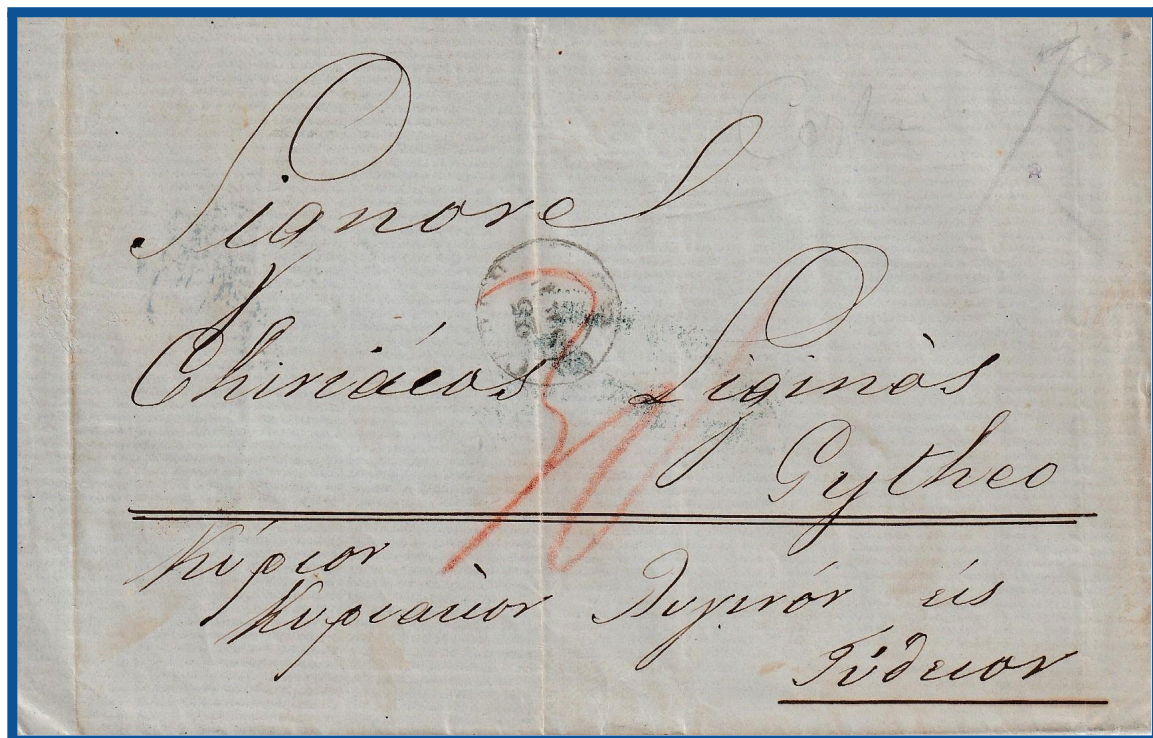 Signore
Chiriácos Liginàs
Gytheo
Κύριον
Κυριακὸν Λιγινόν εις
Γύθειον